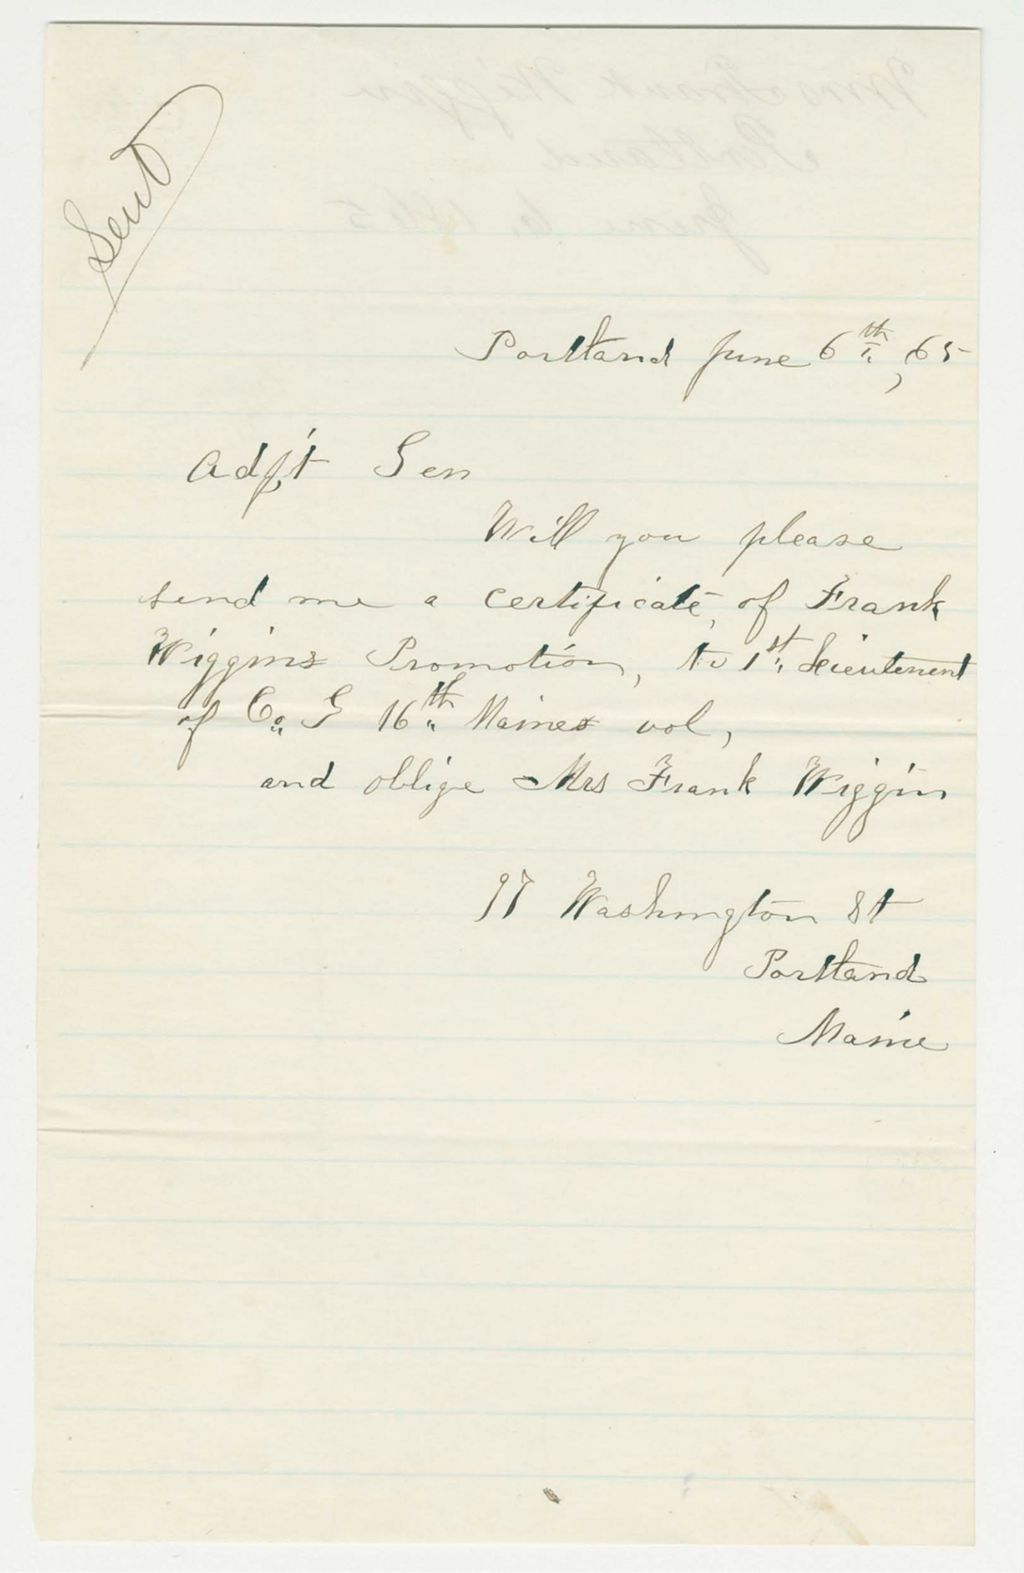 Sent
Portland June 6th, 65
Adj't Gen
Will you please
send me a certificate, of Frank
Wiggins Promotion, to 1st Lieutenent
of Co. G 16th Maines vol,
and oblige Mrs Frank Wiggin
97 Washington St
Portland
Maine
Mrs Frank Wiggin
Portland
June 6, 1865